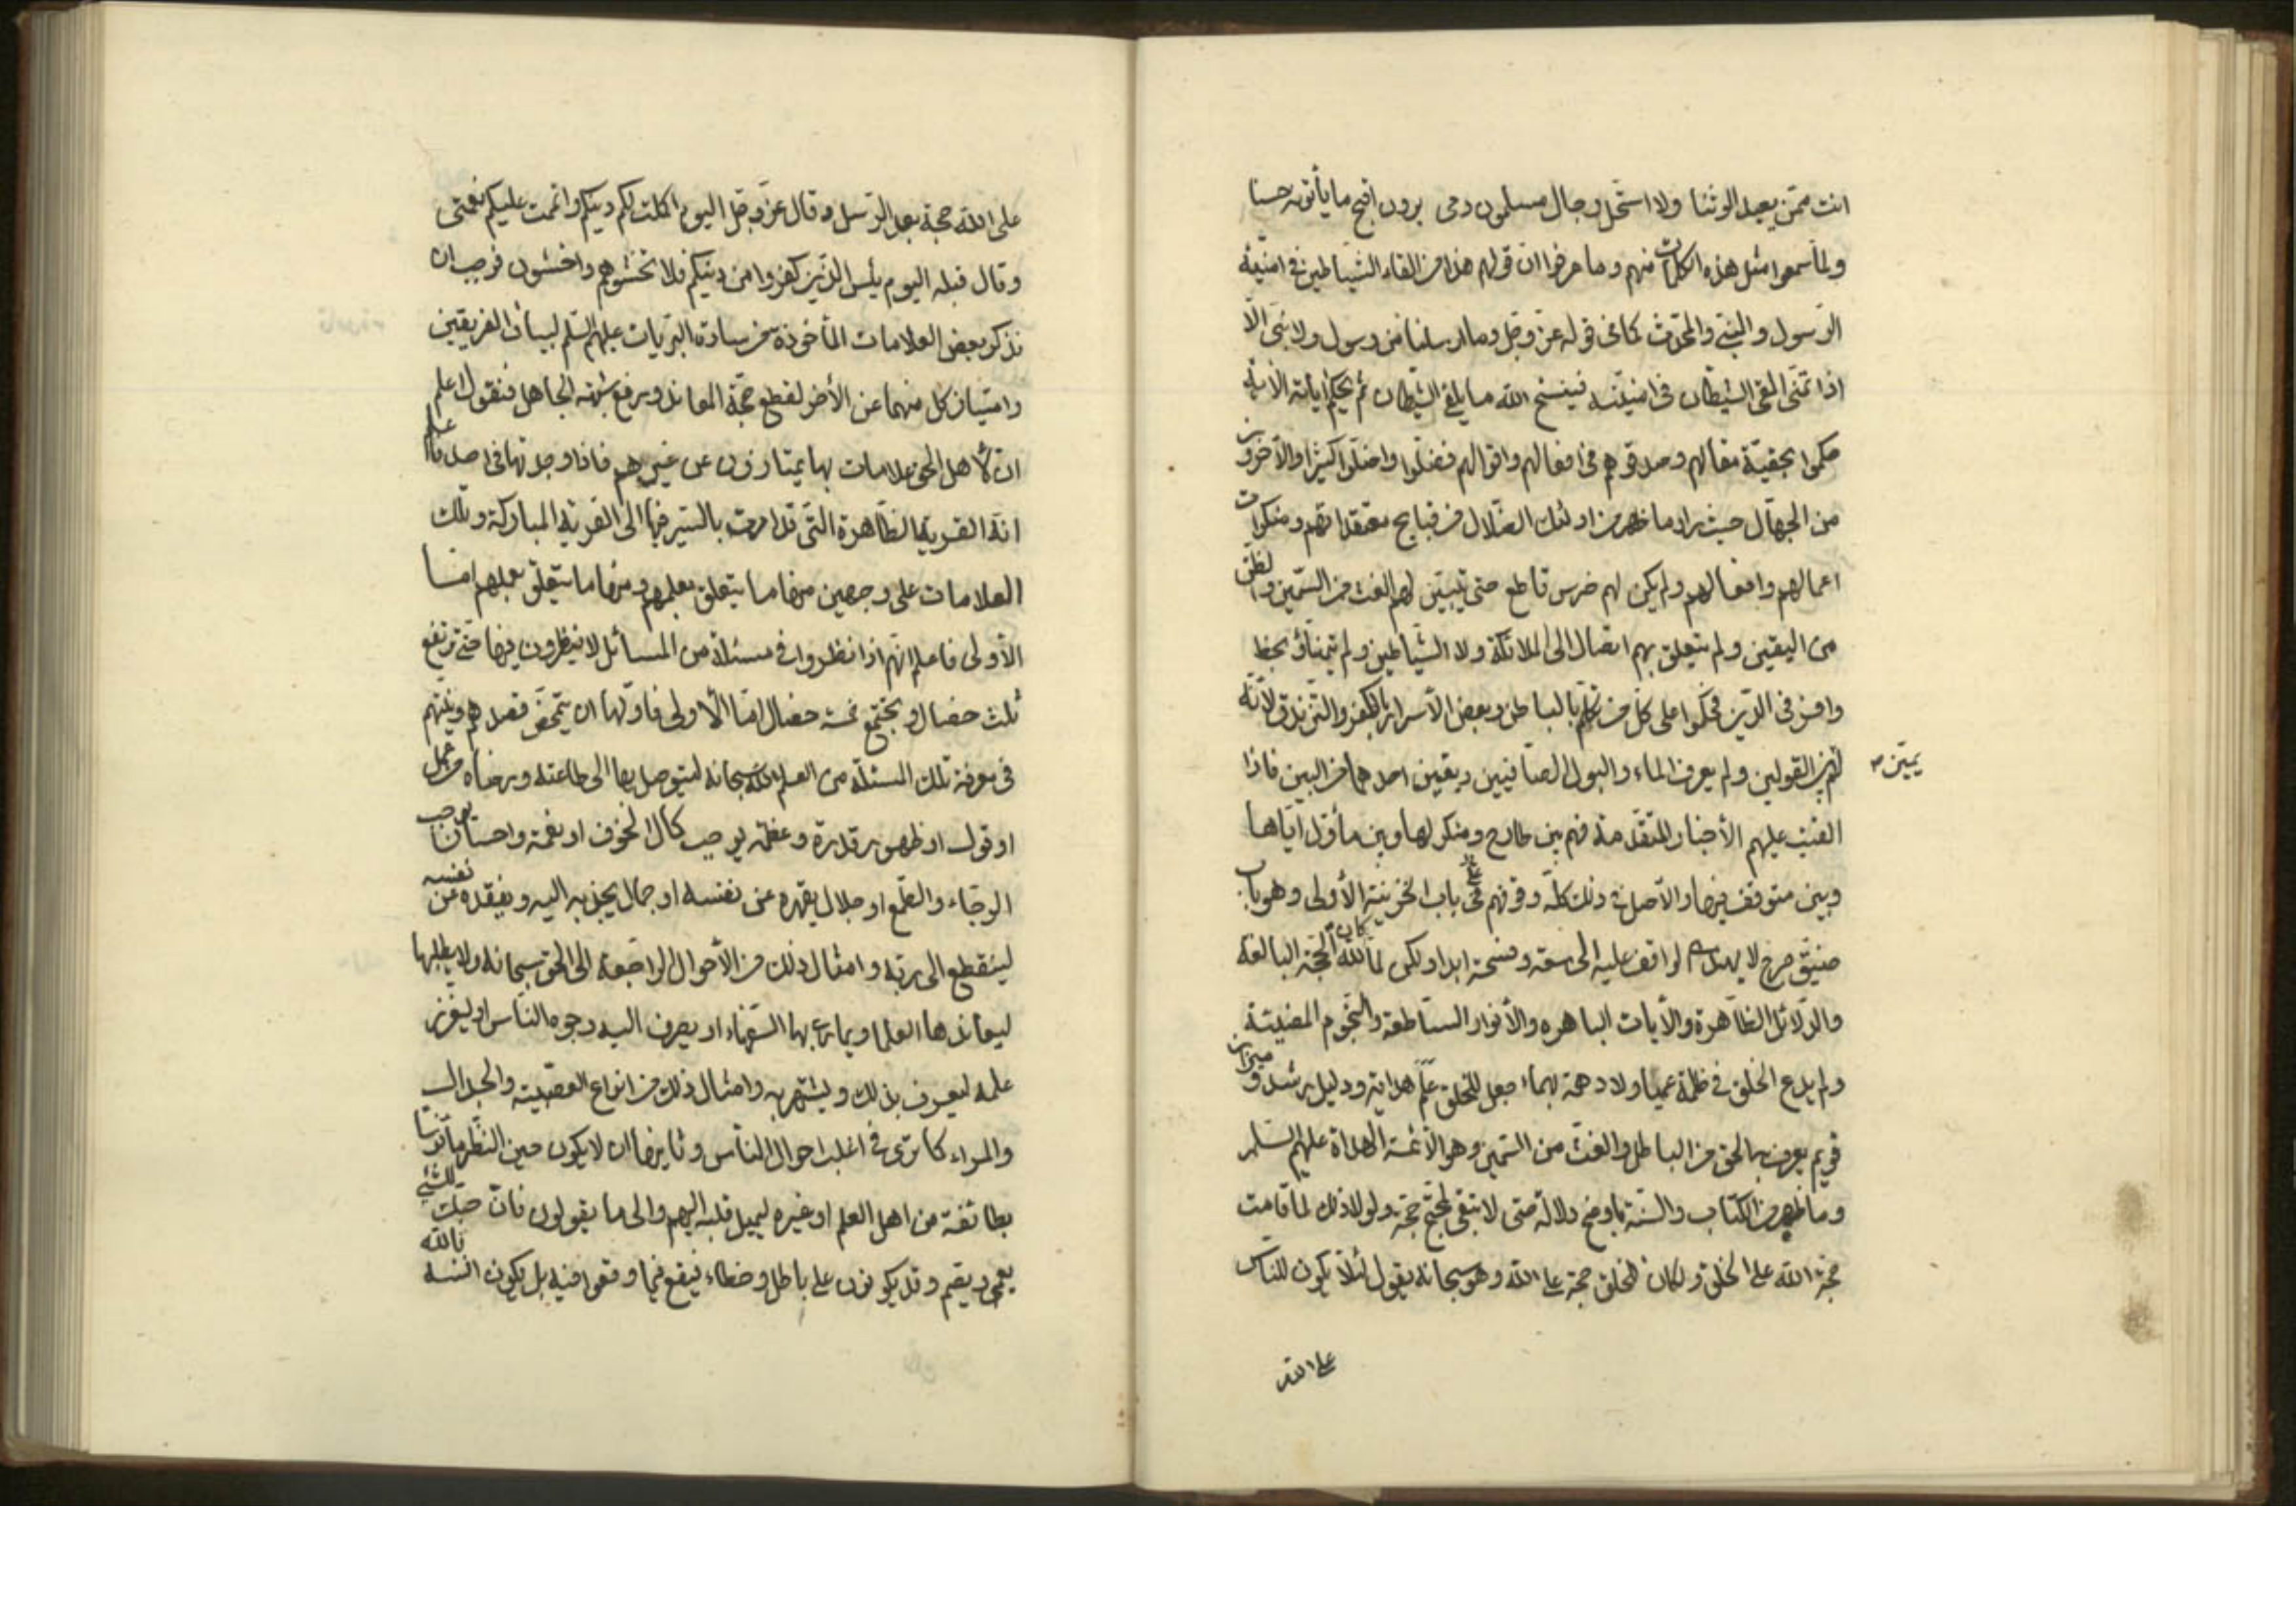 انت ممّن يعبد الوثنا ولا استحل رجال مسلمون دمى يرون اقبح ما يأتونه حسنا
ولما سمعوا مثل هذه الكلمات منهم وما عرفوا ان قولهم هذا من القاء الشياطين فى امنية
الرسول والنبى والمحدث كما فى قوله عز وجل وما ارسلنا من رسول ولا نبى الا
اذا تمنى القى الشيطان فى امنيته فينسخ الله ما يلقى الشيطان ثم يحكم اياته الاية
حكموا بحقية مقالهم وصدقوهم فى افعالهم واقوالهم فضلوا واضلوا كثيرا والاخرون
من الجهال حيث راوا ما ظهر من اولئك الضلال من قبايح معتقداتهم ومنكرات
اعمالهم وافعالهم ولم يكن لهم ضرس قاطع حتى يتبين لهم الغث من السمين والظن
من اليقين ولم يتعلق بهم اتصال الى الملائكة ولا الشياطين ولم بحظ
وافر فى الدين فحكموا على كل من تكلم بالباطن وبعض الاسرار بالكفر والتزندق لانه
لم يميّز بين القولين ولم يعرف الماء والبول الصافيين ويقين احدهما من البين فاذا
القيت عليهم الأخبار المتقدمة فهم بين طارح ومنكر لها وبين مأوّل اياها
وبين متوقف فيها والأصل فى ذلك كله وقوفهم على باب الخزينة الأولى وهو باب
ضيق حرج لا لواقف عليه الى سعة وفسحة ابدا ولكن لما كان لله الحجة البالغة
والدلائل الظاهرة والأيات الباهره والأنوار الساطعة والنجوم المضيئة
ولم يدع الخلق فى ظلمة عمياء ولا دهمة بهماء جعل للخلق علم هداية ودليل رشد وميزان
قويم يعرف به الحق من الباطل والغث من السمين وهو الأئمة الهداة عليهم السلم
وما ظهر من الكتاب والسنة باوضح دلالة حتى لا تبقى لمحتج حجة ولولا ذلك لما قامت
حجة الله على الخلق ولكان للخلق حجة على الله وهو سبحانه يقول لئلا يكون للناس
على الله
على الله حجة بعد الرسل وقال عز وجل اليوم اكملت لكم دينكم واتممت عليكم نعمتى
وقال قبله اليوم يئس الذين كفروا من دينكم فلا تخشوهم واخشون فوجب ان
نذكر بعض العلامات المأخوذة من سادة البريات عليهم السلم لبيان الفريقين
وامتياز كل منهما عن الأخر لقطع حجة المعاند ورفع شبهة الجاهل فنقول اعلم
ان لأهل الحق علامات بها يمتازون عن غيرهم فاذا وجدتها فى احد فاعلم
انه القرية الظاهرة التى قد امرت بالسير فيها الى القرية المباركة وتلك
العلامات على وجهين منها ما يتعلق بعلمهم ومنها ما يتعلق بعملهم امّا
الأولى فاعلم انهم اذا نظروا فى مسئلة من المسائل لا ينظرون فيها حتى ترتفع
ثلث خصال و يجتمع خمسة خصال امّا الأولى فاولها ان يتمحض قصدهم ونيتهم
فى معرفة تلك المسئلة من العلم لله سبحانه ليتوصل بها الى طاعته ورضاه من عمل
او قول او ظهور قدرة وعظمة يوجب كمال الخوف او نعمة واحسان يوجب
الرجاء والطمع او جلال يقهره عن نفسه او جمال يجذبه اليه ويفقده عن نفسه
لينقطع الى ربه وامثال ذلك من الأحوال الراجعة الى الحق سبحانه ولا يطلبها
ليعاند بها العلما ويمارى بها السفهاء او يصرف اليه وجوه الناس او
علمه ليعرف بذلك ويشتهر به وامثال ذلك من انواع العصبية والجدال
والمراء كما ترى فى اغلب احوال الناس وثانيها ان لا يكون حين النظر مأنوسا
بطائفة من اهل العلم او غيره ليميل قلبه اليهم والى ما يقولون فان حبك للشئ
يعمى ويصم وقد يكونون على باطل وخطاء فيقع فيما وقعوا فيه بل يكون انسه بالله